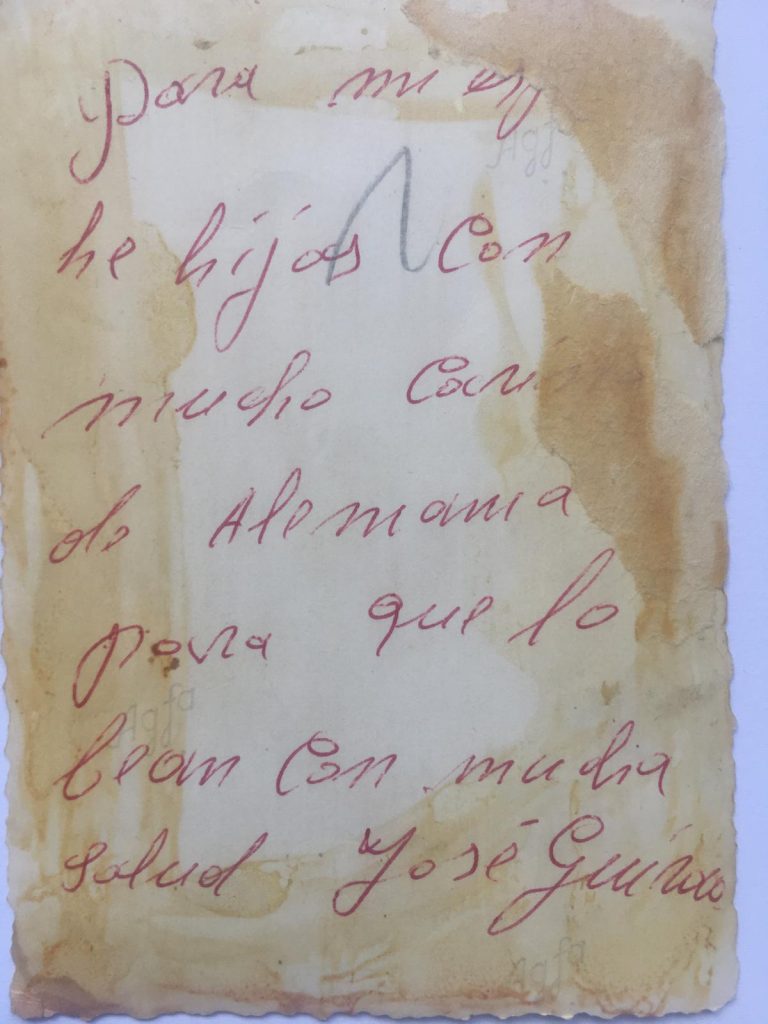 para mi es
he hijos con
mucho cari
de Alemania
para que lo
lean con mucha
salud José Guirao
Agfa
Agfa
Agfa